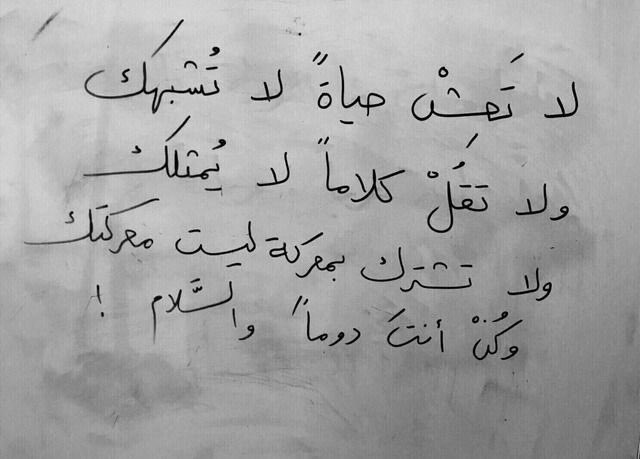 لا تَعِشْ حياةً لا تُشبهك
ولا تقُلْ كلاماً لا يُمثلك
ولا تشترك بمعركة ليست معركتك
وكُنْ أنتَ دوماً والسَّلام !